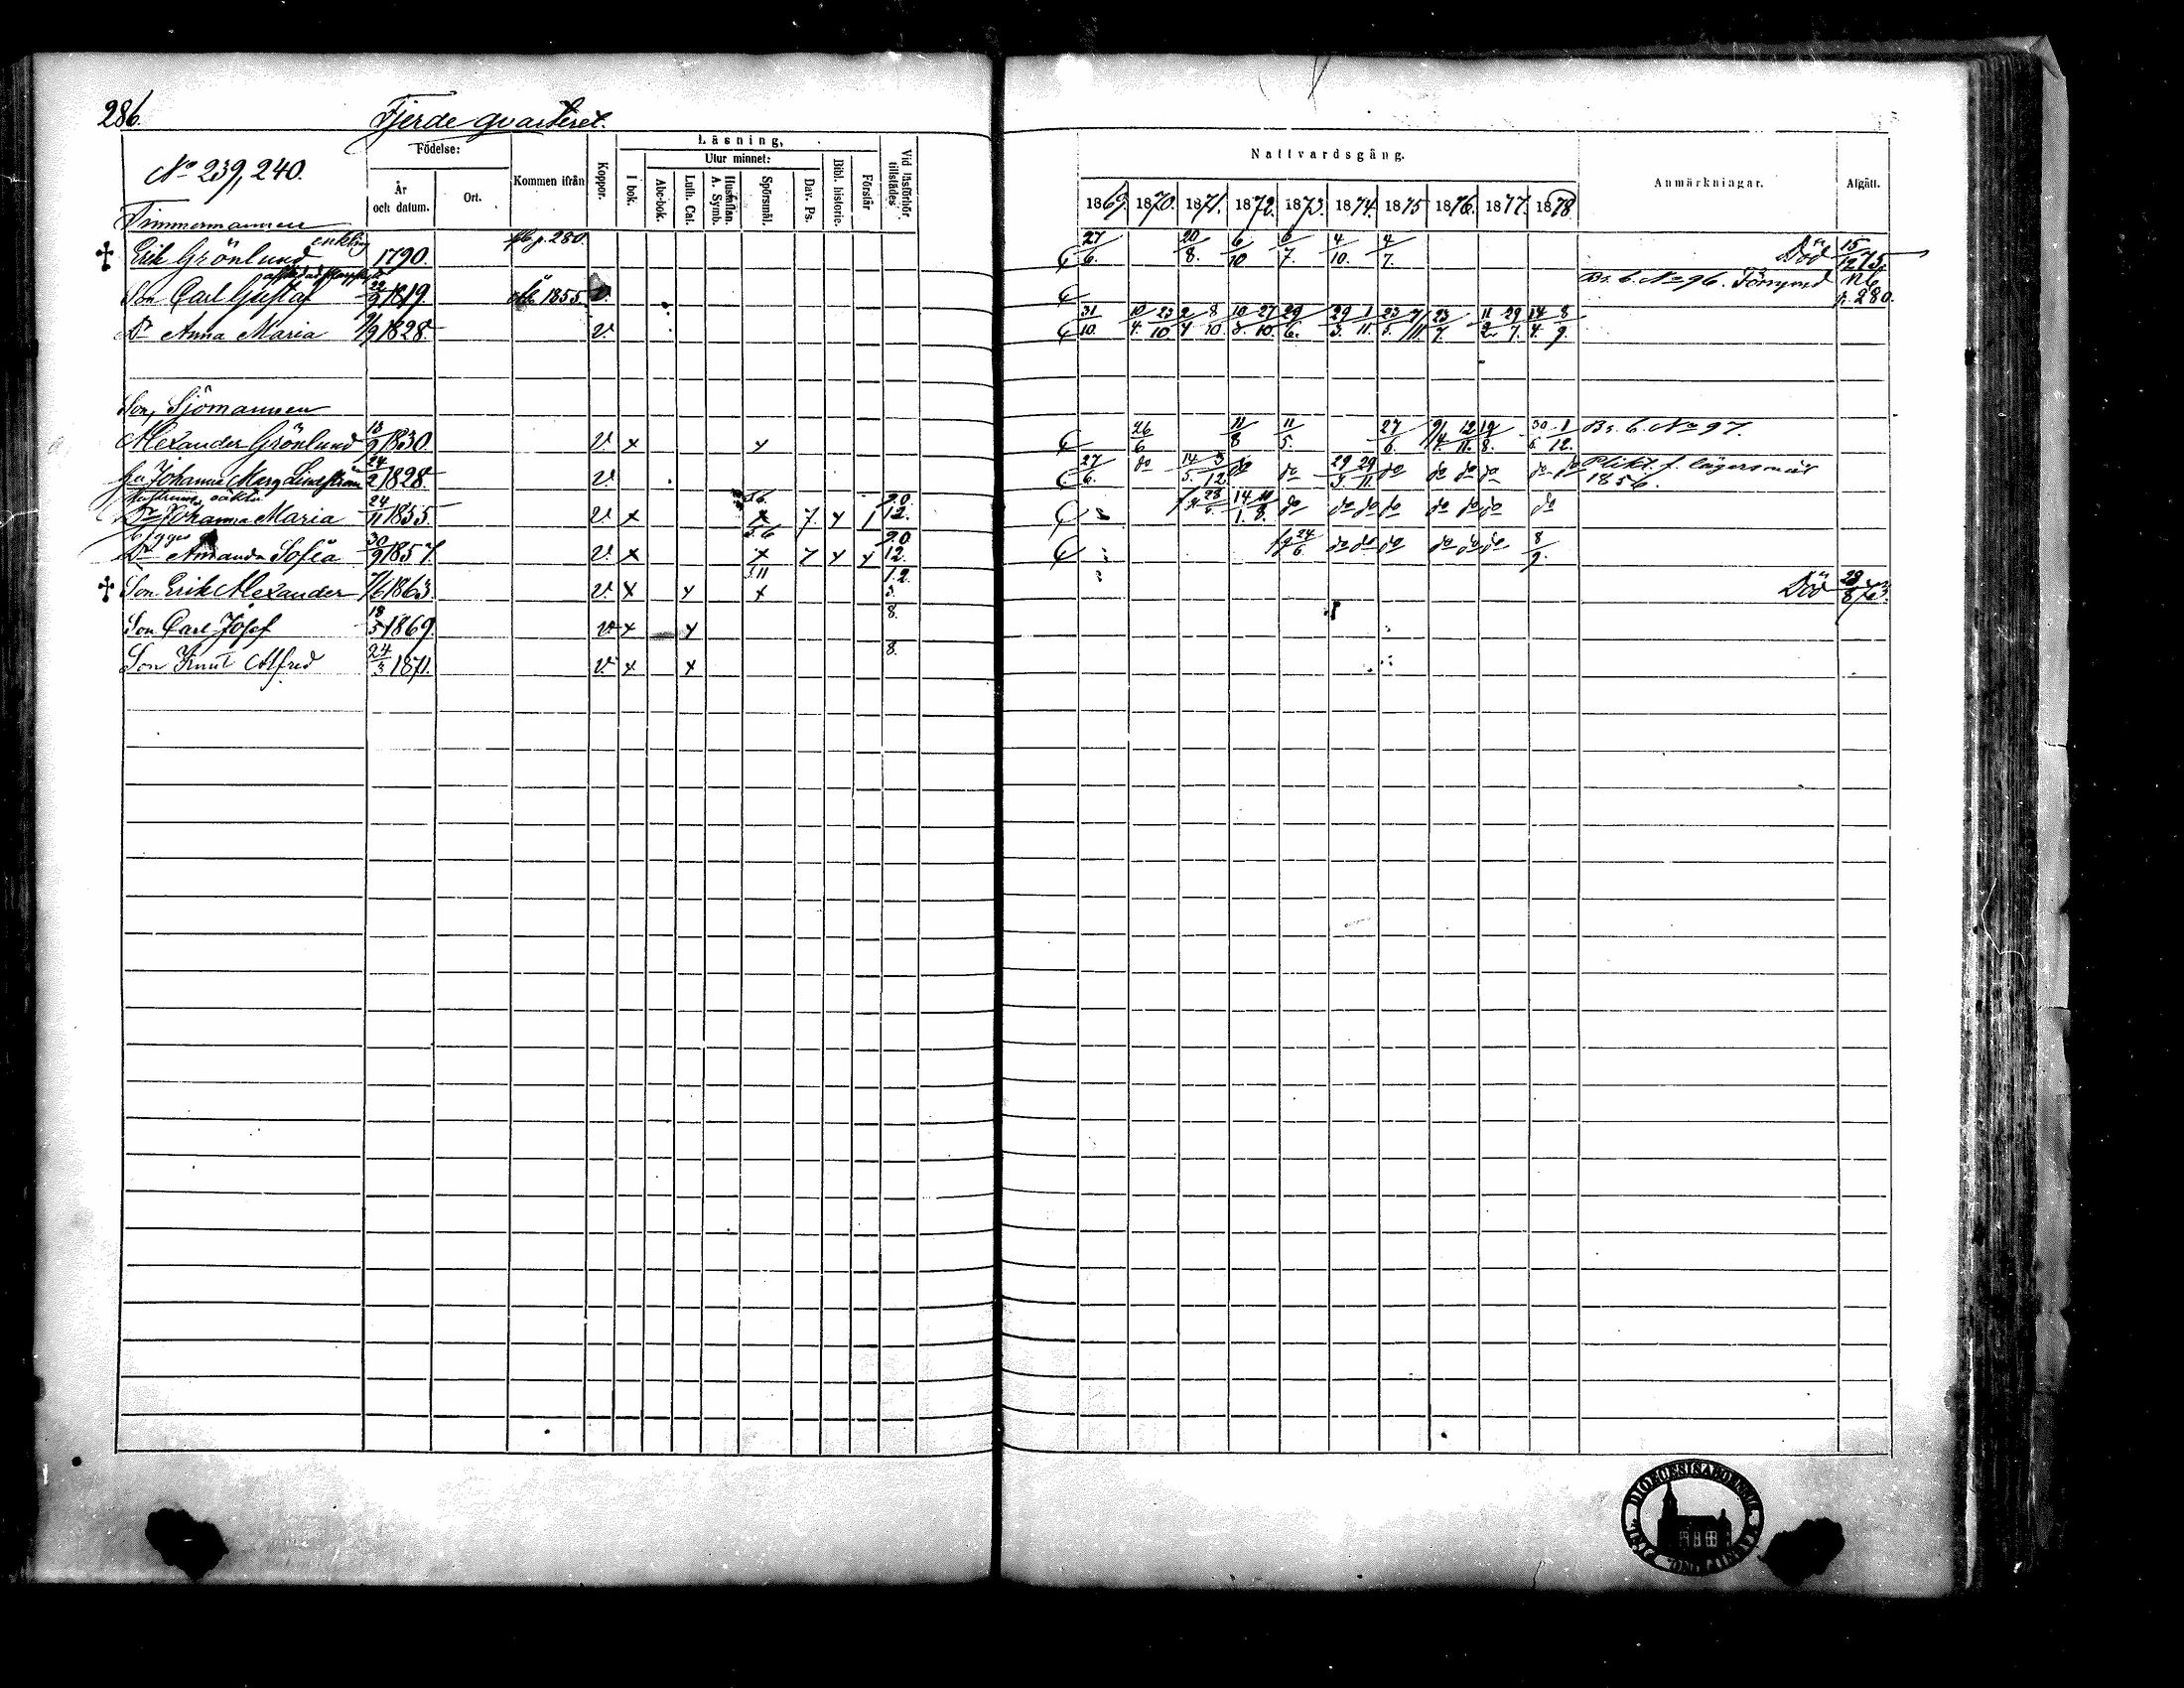 286.
Fjerde qvarteret.
No 239, 240.
Födelse:
År och datum.
Ort.
Kommen ifrån
Koppor.
Läsning,
I bok.
Utur minnet:
Abc-bok.
Luth. Cat.
Hustaflan. A. Symb.
Spörsmål.
Dav. Ps.
Bibl. historie.
Förstår
Vid läsförhör tillstädes
Nattvardsgång.
1869. 1870. 1871. 1872. 1873. 1874. 1875 1876. 1877. 1878
Anmärkningar.
Afgått.
Timmermannen
enkling
Erik Grönlund 1790. p. 280. 27/6. 20/8. 6/10 6/7. 4/10. 4/7. Död 15/12 75.
Son Carl Gustaf 22/9 1819. 1855. v. Br. b. No 96. p. 280.
Dr Anna Maria 9/9 1828. v. 31/10. 10/4. 23/10. 2/4 8/10. 10/8. 27/10. 29/6. 29/3. 1/11. 23/5. 7/11. 23/7. 11/2. 29/7. 14/4. 8/9.
Son, Sjömannen
Alexander Grönlund 13/9 1830. v. x x 26/6 11/8 11/5. 27/6. 9/4. 12/11. 19/8. 30/6. 1/12. Br. b. No 97.
Hu Johanna Marg Lindström 24/2 1828. v. 27/6. do 14/5. 3/12. do do 29/3. 29/11. do do do do do do Plikt. f. lägersmål
1856.
Dr Johanna Maria 24/11 1855. v. x x 7 x 1 20 12. 28 14/1. 11/8. do do do do do do do do
Dr Amanda Sofia 30/9 1857. v. x 5.6 x 7 x x 20 12. 24/6. do do do do do do 8/9.
Son Erik Alexander 7/6 1863. v. x x 5.11 x 12. 3. Död 28/8 73.
Son Carl Josef 18/5 1869. v. x x 8.
Son Knut Alfred 24/3 1871. v. x x 8.